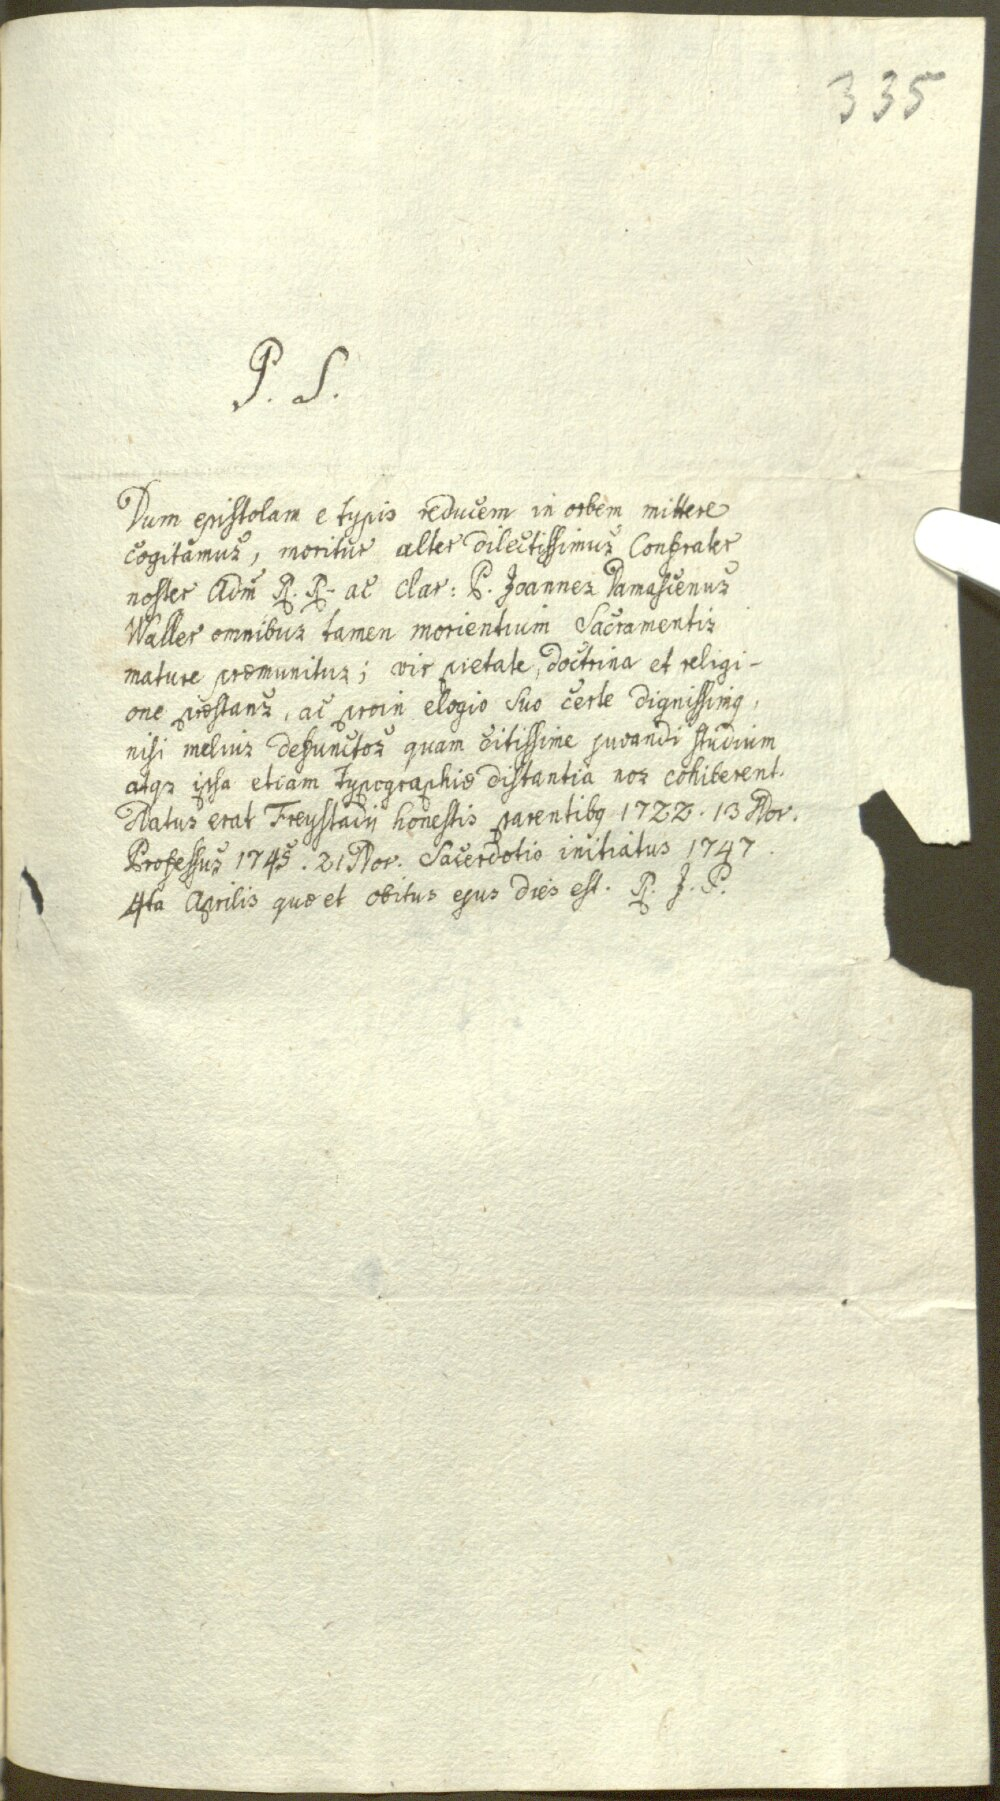 335
P. S.
Dum epistolam e typis reducem in orbem mittere
cogitamus, moritur alter dilectissimus Confrater
noster Adm R. R. ac clar: P. Joannes Damascenus
Waller omnibus tamen morientium Sacramentis
mature præmunitus; vir pietate, doctrina et religi-
one præstans, ac proin elogio suo certe dignissimq,
nisi melius defunctos quam citissime juvandi studium
atqz ipsa etiam typographiæ distantia nos cohiberent.
Natus erat Freystadij honestis parentibq 1722. 13 Nov.
Professus 1745. 21 Nov. Sacerdotio initiatus 1747.
4ta Aprilis quæ et obitus ejus dies est. R. J. P.